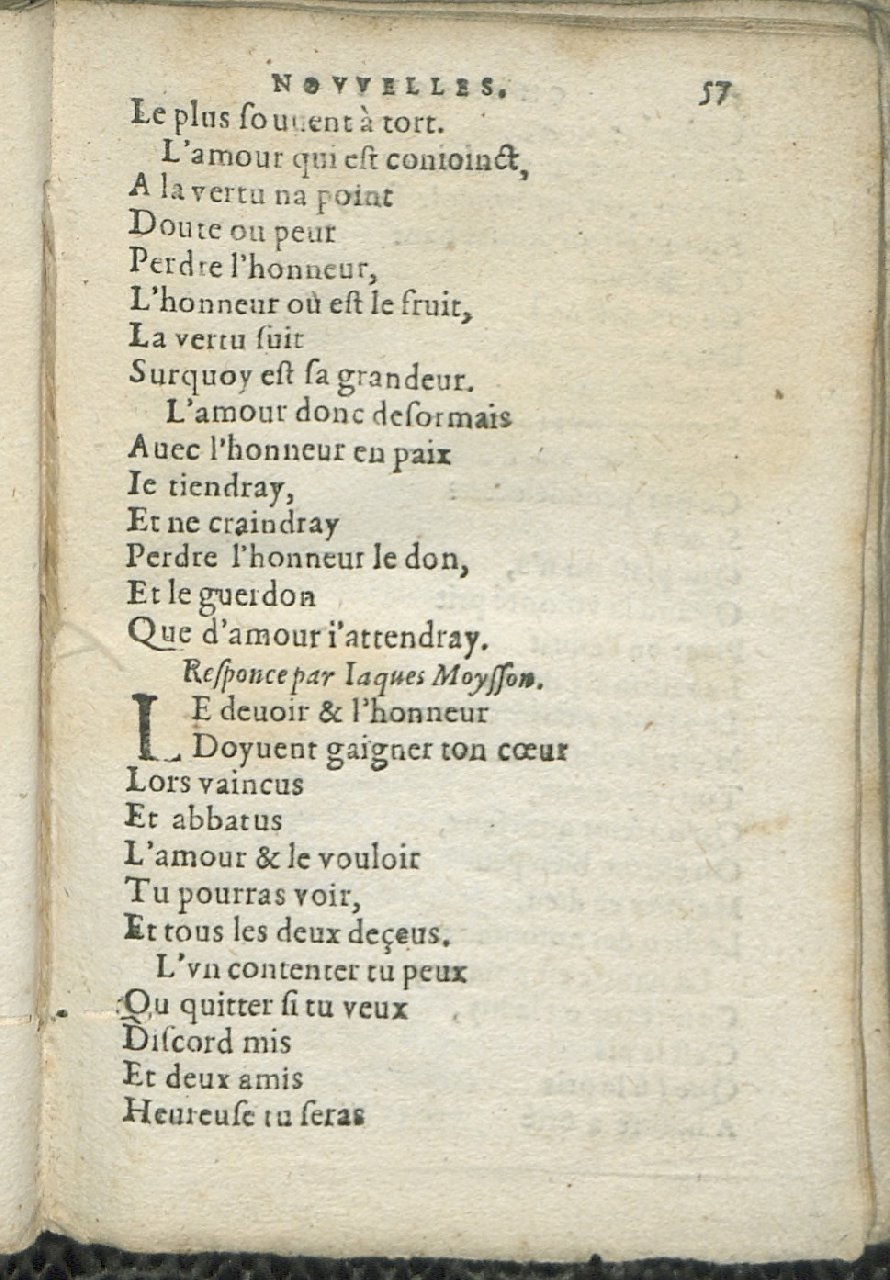 NOVVELLES. 57
Le plus ſouuent à tort.
L'amour qui eſt conioinct,
A la vertu na point
Doute ou peur
Perdre l'honneur,
L'honneur où eſt le fruit,
La vertu ſuit
Surquoy eſt ſa grandeur.
L'amour donc deſormais
Auec l'honneur en paix
Ie tiendray,
Et ne craindray
Perdre l'honneur le don,
Et le guerdon
Que d'amour i'attendray.
Reſponce par Iaques Moyſſon.
LE deuoir & l'honneur
Doyuent gaigner ton cœur
Lors vaincus
Et abbatus
L'amour & le vouloir
Tu pourras voir,
Et tous les deux deçeus.
L'vn contenter tu peux
Ou quitter ſi tu veux
Diſcord mis
Et deux amis
Heureuſe tu ſeras